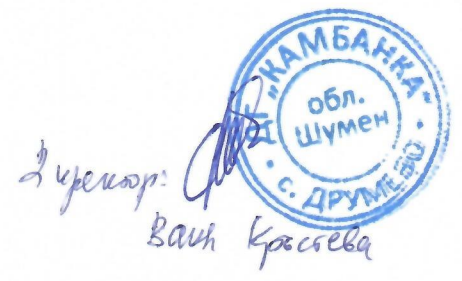 ДГ „КАМБАНКА“
обл.
Шумен
• с. ДРУМЕВО •
Директор:
Ваня Кръстева